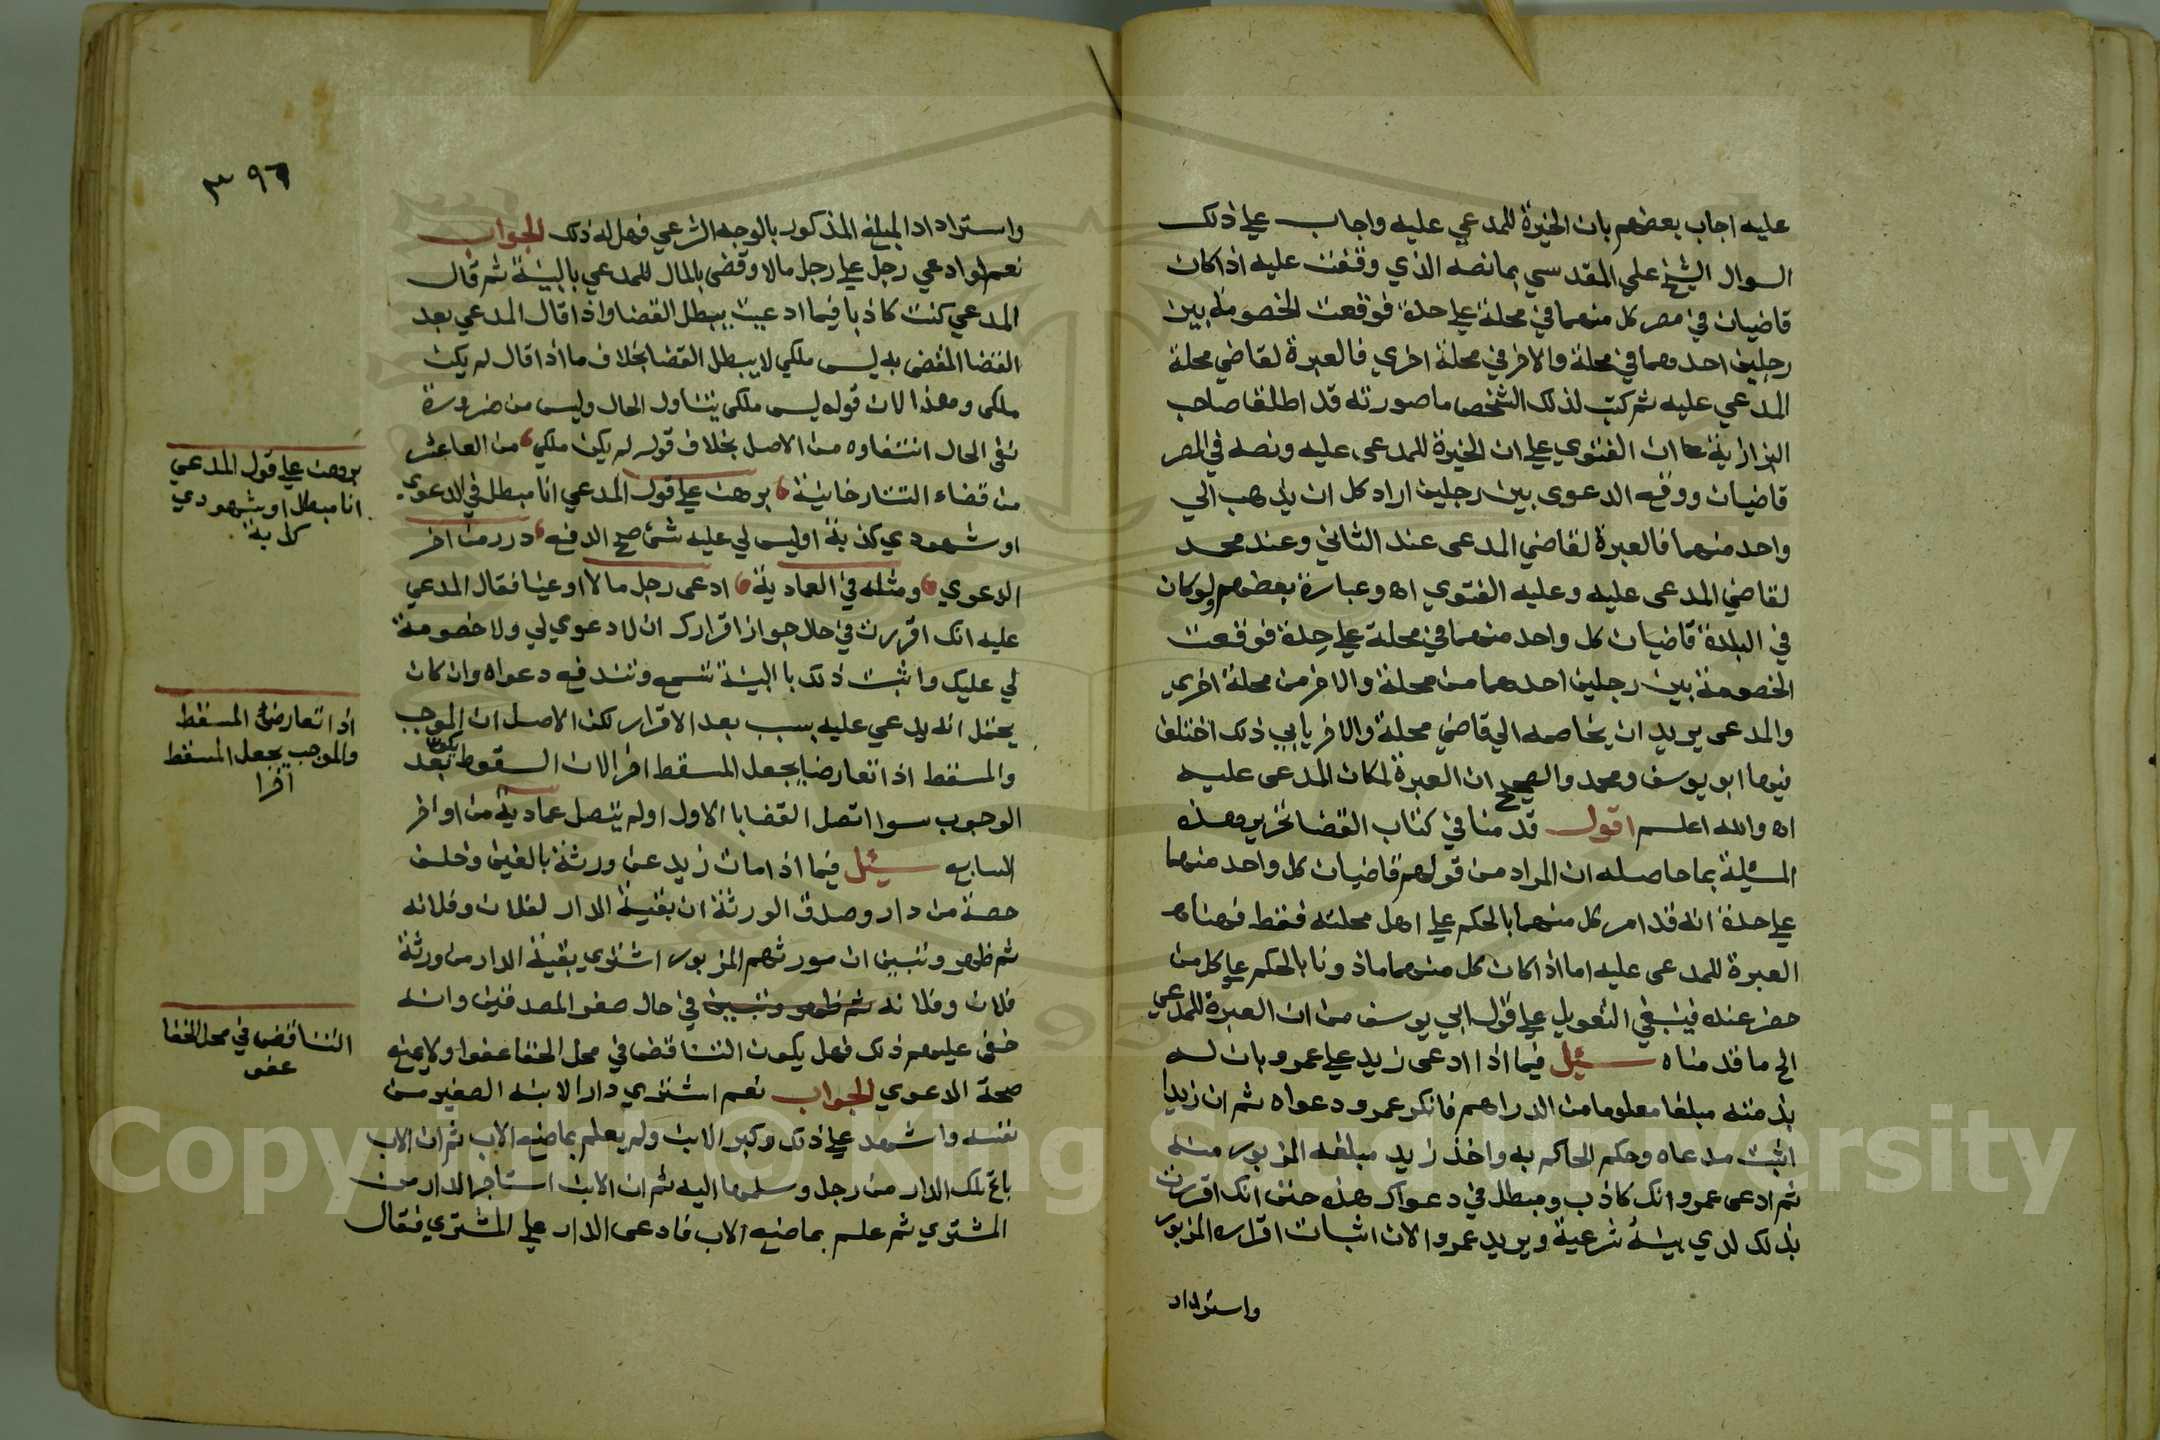 عليه اجاب بعضهم بان الخيرة للمدعي عليه واجاب علي ذلك
السوال الشيخ علي المقدسي بما نصه الذي وقفت عليه اذا كان
قاضيان في مصر كل منهما في محلة علي حدة فوقعت الخصومة بين
رجلين احدهما في محلة والاخر في محلة اخري فالعبرة لقاضي محلة
المدعي عليه ثم كتب لذلك الشخص ما صورته قد اطلقا صاحب
البزازية ان الفتوي علي ان الخيرة للمدعى عليه ونصه في المصر
قاضيان ووقع الدعوى بين رجلين اراد كل ان يذهب الي
واحد منهما فالعبرة لقاضي المدعى عند الثاني وعند محمد
لقاضي المدعى عليه وعليه الفتوي اه وعبارة بعضهم ولو كان
في البلدة قاضيان كل واحد منهما في محلة علي حدة فوقعت
الخصومة بين رجلين احدهما من محلة والاخر من محلة اخري
والمدعى يريد ان يخاصمه الي قاضي محلة والاخر يابي ذلك اختلف
فيها ابو يوسف ومحمد والصحيح ان العبرة لمكان المدعى عليه
اه والله اعلم اقول قدمنا في كتاب القضا تحرير هذه
المسئلة بما حاصله ان المراد من قولهم قاضيان كل واحد منهما
علي حدة انه قد امر كل منهما بالحكم علي اهل محلته فقط فهناك
العبرة للمدعى عليه اما اذا كان كل منهما ماذونا بالحكم علي كل من
حضر عنده فينبغي التعويل علي قول ابي يوسف من ان العبرة للمدعي
الخ ما قدمناه سئل فيما اذا ادعى زيد علي عمرو بان له
بذمته مبلغا معلوما من الدراهم فانكر عمرو دعواه ثم ان زيدا
اثبت مدعاه وحكم الحاكم به واخذ زيد مبلغه المزبور منه
ثم ادعى عمرو انك كاذب ومبطل في دعواك هذه حتى انك اقررت
بذلك لدي بينة شرعية ويريد عمرو الان اثبات اقراره المزبور
واسترداد
٣٩٦
واسترداد المبلغ المذكور بالوجه الشرعي فهل له ذلك الجواب
نعم لو ادعي رجل علي رجل مالا وقضى بالمال للمدعي بالبينة ثم قال
المدعي كنت كاذبا فيما ادعيت يبطل القضا واذا قال المدعي بعد
القضا المقضى به ليس ملكي لا يبطل القضا بخلاف ما اذا قال لم يكن
ملكى وهذا لان قوله ليس ملكى يتناول الحال وليس من ضرورة
نفى الحال انتفاوه من الاصل بخلاف قوله لم يكن ملكي من العاشر
من قضاء التتارخانية برهن علي قول المدعي انا مبطل في الدعوي
او شهودي كذبة او ليس لي عليه شئ صح الدفع درر من اخر
الدعوي ومثله في العمادية ادعى رجل مالا او عينا فقال المدعي
عليه انك اقررت في حال جواز اقرارك ان لا دعوي لي ولا خصومة
لي عليك واثبت ذلك بالبينة تسمع وتندفع دعواه وان كان
يحتمل انه يدعي عليه بسبب بعد الاقرار لكن الاصل ان الموجب
والمسقط اذا تعارضا يجعل المسقط اخرا لان السقوط يكون بعد
الوجوب سوا اتصل القضا بالاول او لم يتصل عمادية من اواخر
السابع سئل فيما اذا مات زيد عن ورثة بالغين وخلف
حصة من دار وصدق الورثة ان بقية الدار لفلان وفلانه
ثم ظهر وتبين ان مورثهم المزبور اشتري بقية الدار من ورثة
فلان وفلانه ثم ظهر وتبين في حال صغر المصدقين وانه
خفى عليهم ذلك فهل يكون التناقض في محل الخفا عفوا ولا يمنع
صحة الدعوي الجواب نعم اشتري دارا لابنه الصغير من
نفسه واشهد علي ذلك وكبر الابن ولم يعلم بما صنع الاب ثم ان الاب
باع تلك الدار من رجل وسلمها اليه ثم ان الابن استاجر الدار من
المشتري ثم علم بما صنع الاب فادعى الدار علي المشتري فقال
برهن علي قول المدعي
انا مبطل او شهودي
كذبة
اذا تعارض المسقط
والموجب يجعل المسقط
اخرا
التناقض في محل الخفا
عفو
Copyright © King Saud University